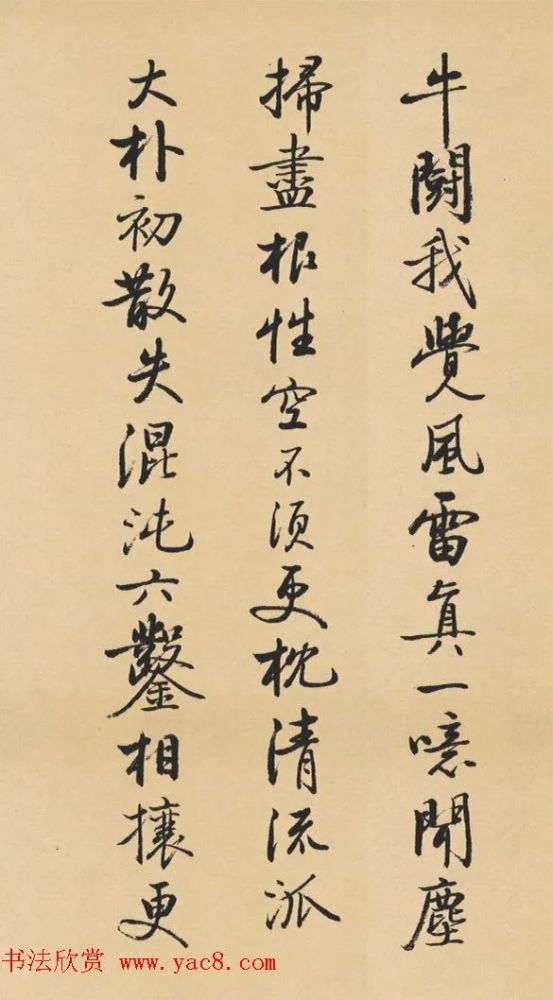 牛鬪我覺風雷真一噫聞塵
掃盡根性空不須更枕清流派
大朴初散失混沌六鑿相攘更
书法欣赏 www.yac8.com